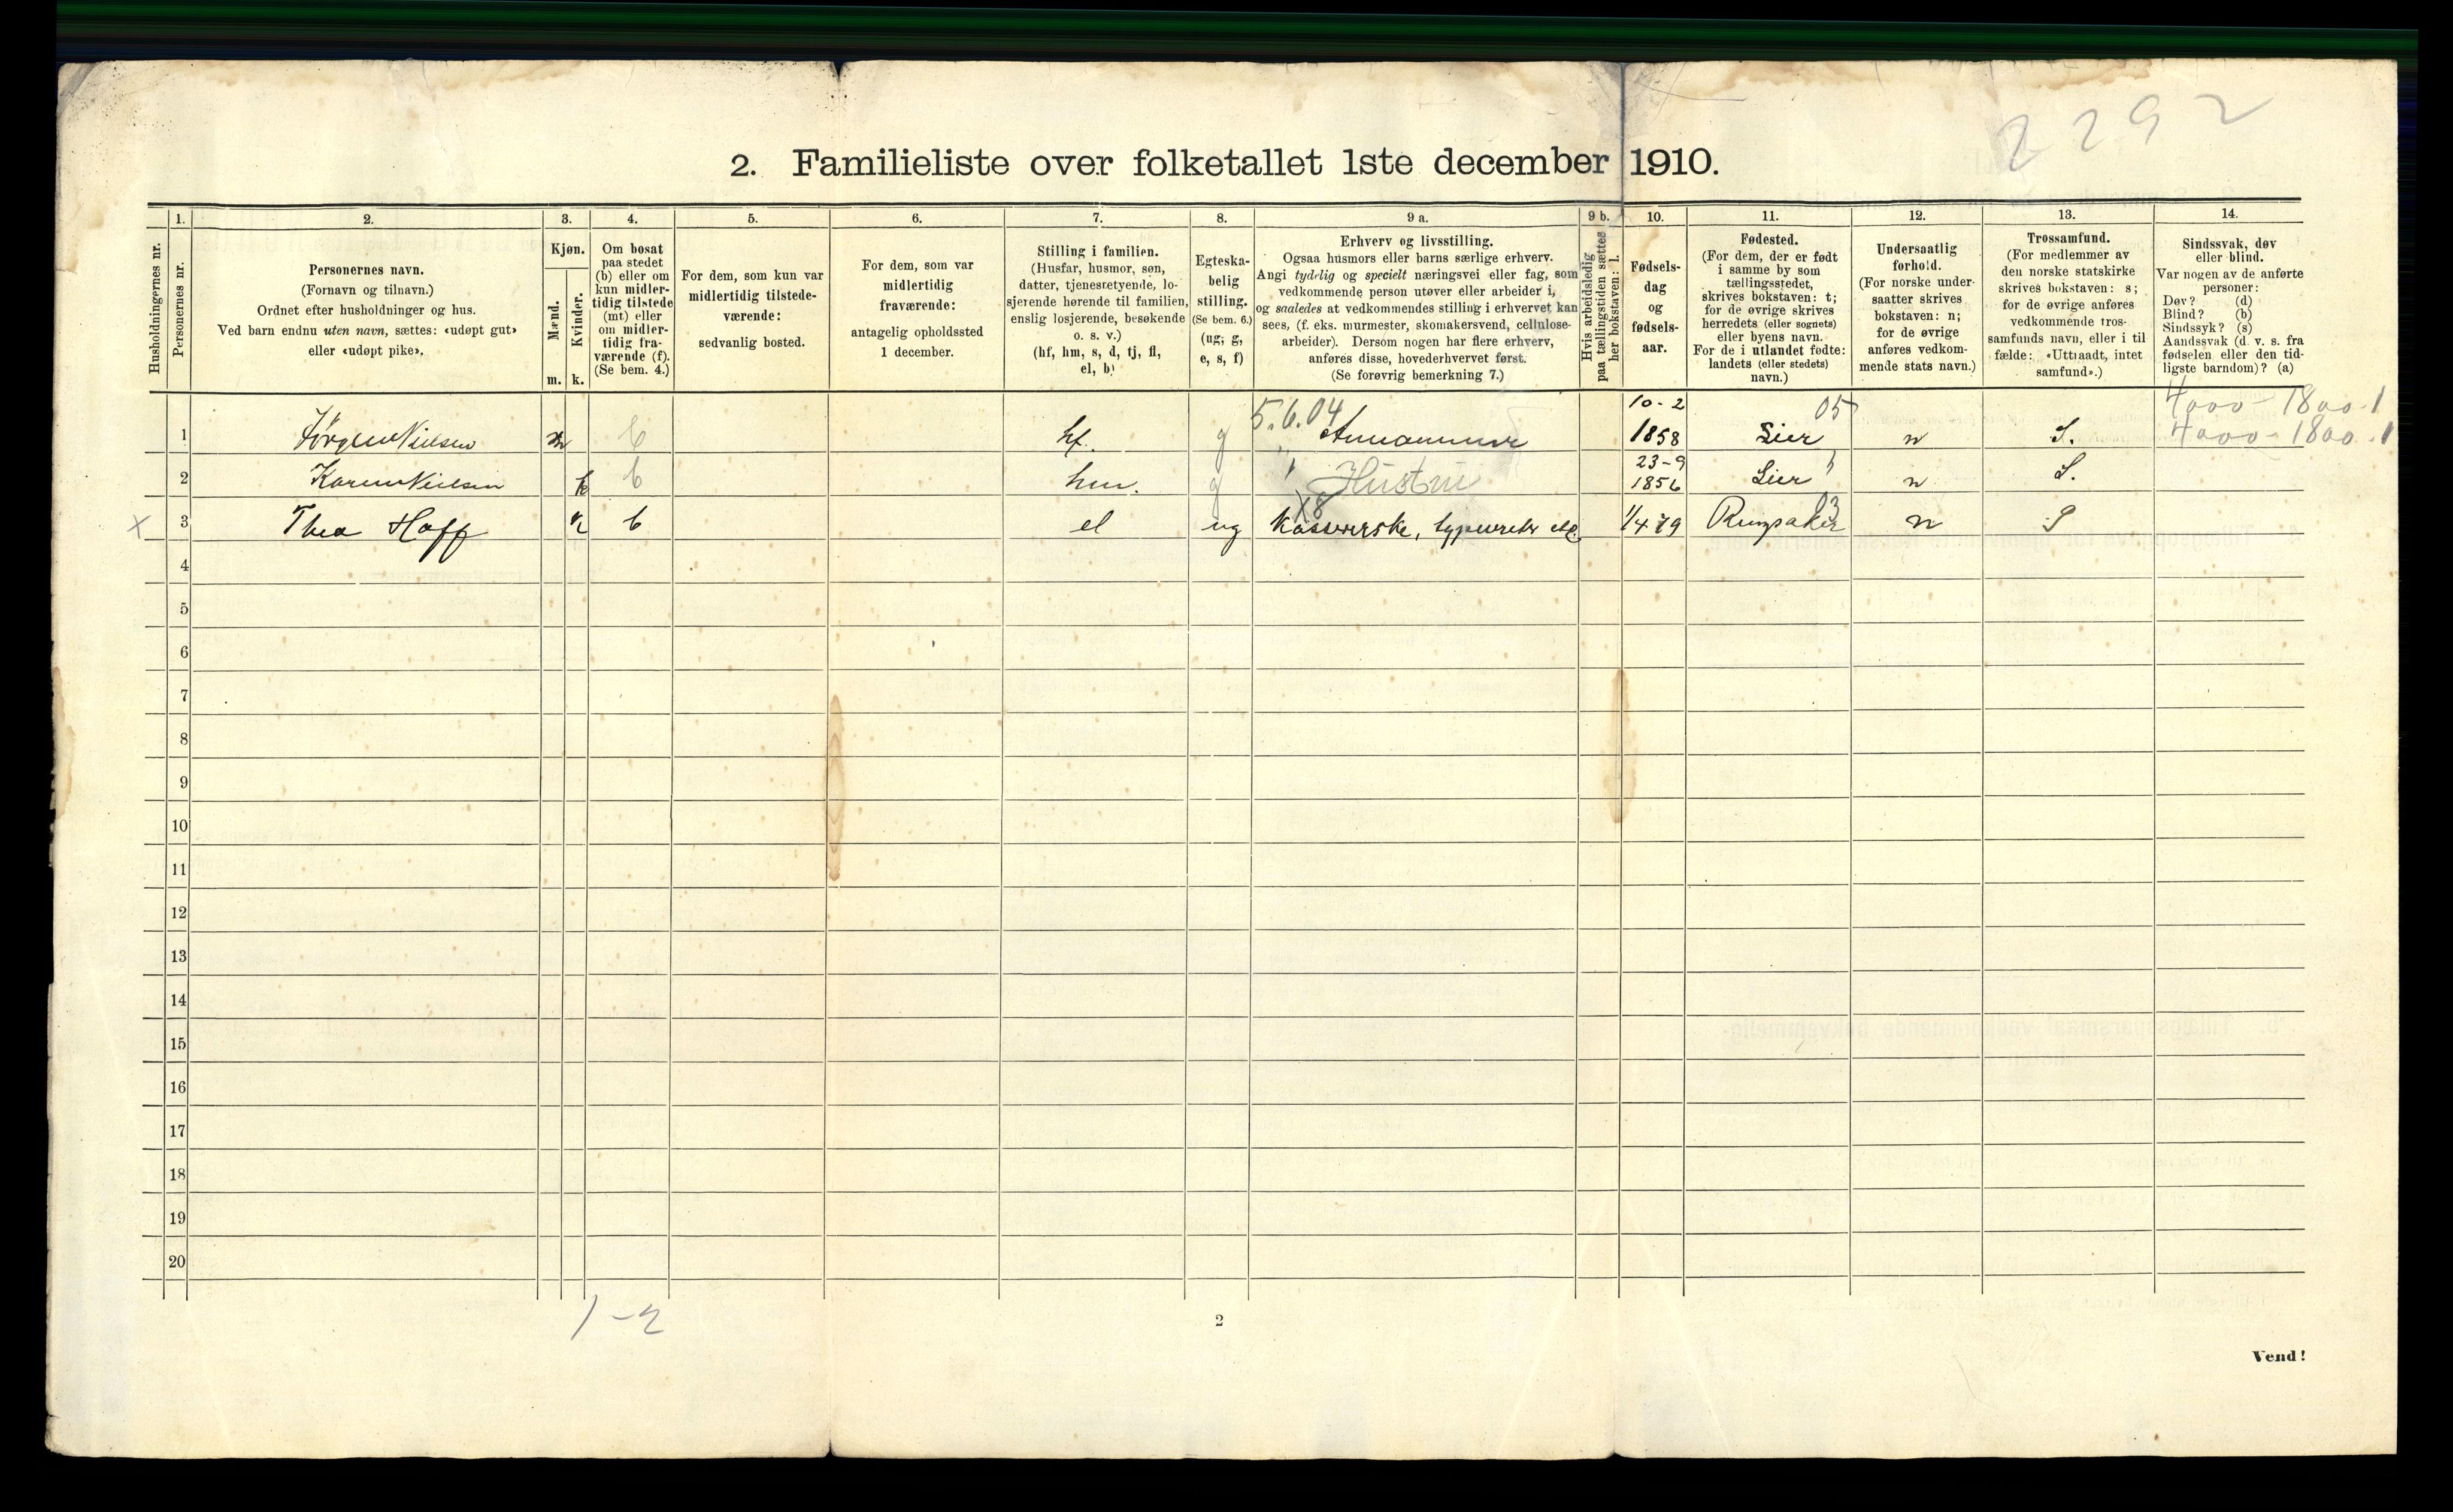 2292
2. Familieliste over folketallet 1ste december 1910.
Husholdningernes nr.
1.
Personernes nr.
2.
Personernes navn.
(Fornavn og tilnavn.)
Ordnet efter husholdninger og hus.
Ved barn endnu uten navn, sættes: «udøpt gut»
eller «udøpt pike».
3.
Kjøn.
Mænd.
Kvinder.
m. k.
4.
Om bosat
paa stedet
(b) eller om
kun midler-
tidig tilstede
(mt) eller
om midler-
tidig fra-
værende (f).
(Se bem. 4.)
5.
For dem, som kun var
midlertidig tilstede-
værende:
sedvanlig bosted.
6.
For dem, som var
midlertidig
fraværende:
antagelig opholdssted
1 december.
7.
Stilling i familien.
(Husfar, husmor, søn,
datter, tjenestetyende, lo-
sjerende hørende til familien,
enslig losjerende, besøkende
o. s. v.)
(hf, hm, s, d, tj, fl,
el, b)
8.
Egteska-
belig
stilling.
(Se bem. 6.)
(ug, g,
e, s, f)
9 a.
Erhverv og livsstilling.
Ogsaa husmors eller barns særlige erhverv.
Angi tydelig og specielt næringsvei eller fag, som
vedkommende person utøver eller arbeider i,
og saaledes at vedkommendes stilling i erhvervet kan
sees, (f. eks. murmester, skomakersvend, cellulose-
arbeider). Dersom nogen har flere erhverv,
anføres disse, hovederhvervet først.
(Se forøvrig bemerkning 7.)
9 b.
Hvis arbeidsledig
paa tællingstiden sættes
her bokstaven: l.
10.
Fødsels-
dag
og
fødsels-
aar.
11.
Fødested.
(For dem, der er født
i samme by som
tællingsstedet,
skrives bokstaven: t;
for de øvrige skrives
herredets (eller sognets)
eller byens navn.
For de i utlandet fødte:
landets (eller stedets)
navn.)
12.
Undersaatlig
forhold.
(For norske under-
saatter skrives
bokstaven: n;
for de øvrige
anføres vedkom-
mende stats navn.)
13.
Trossamfund.
(For medlemmer av
den norske statskirke
skrives bokstaven: s;
for de øvrige anføres
vedkommende tros-
samfunds navn, eller i til
fælde: «Uttraadt, intet
samfund».)
14.
Sindssvak, døv
eller blind.
Var nogen av de anførte
personer:
Døv? (d)
Blind? (b)
Sindssyk? (s)
Aandssvak (d. v. s. fra
fødselen eller den tid-
ligste barndom)? (a)
5.6.04 10-2 05 4000-1800.1
1 Jørgen Nielsen m b hf. g 1858 Lier n S. 4000-1800.1
23-9
2 Karen Nielsen k b hm. g Hustru 1856 Lier n S.
X8 03
x 3 Thea Hoff k b el ug Kasserske, typewriter etc 1/4 79 Ringsaker n S
4
5
6
7
8
9
10
11
12
13
14
15
16
17
18
19
20
1-2
2
Vend!